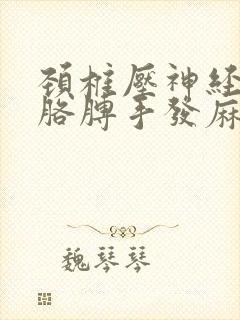 頚椎壓神経
胳膊手發麻
魏琴琴